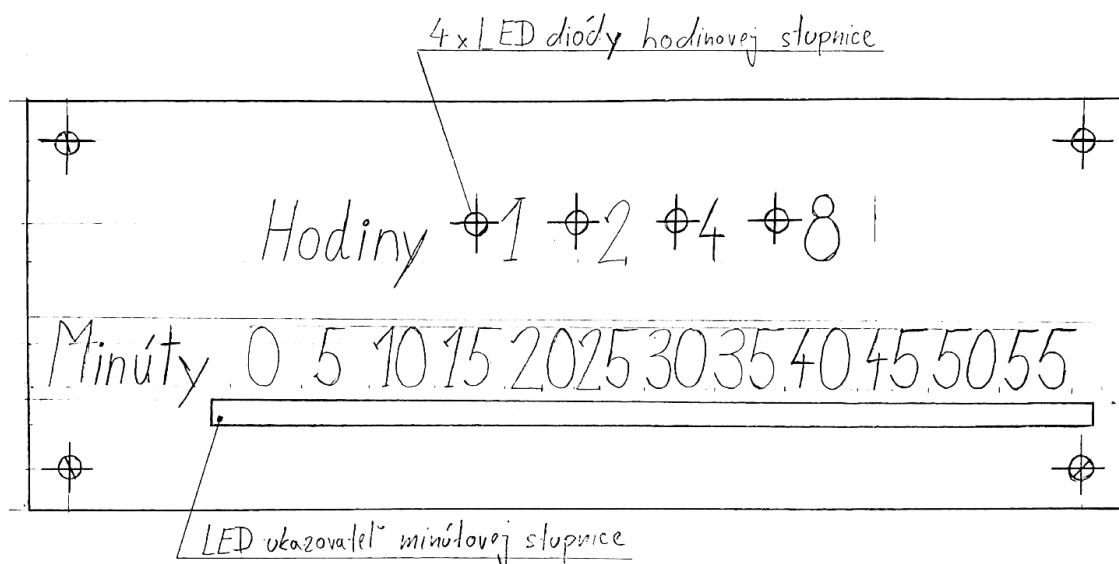 4 x LED diódy hodinovej stupnice
Hodiny 1 2 4 8
Minúty 0 5 10 15 20 25 30 35 40 45 50 55
LED ukazovateľ minútovej stupnice